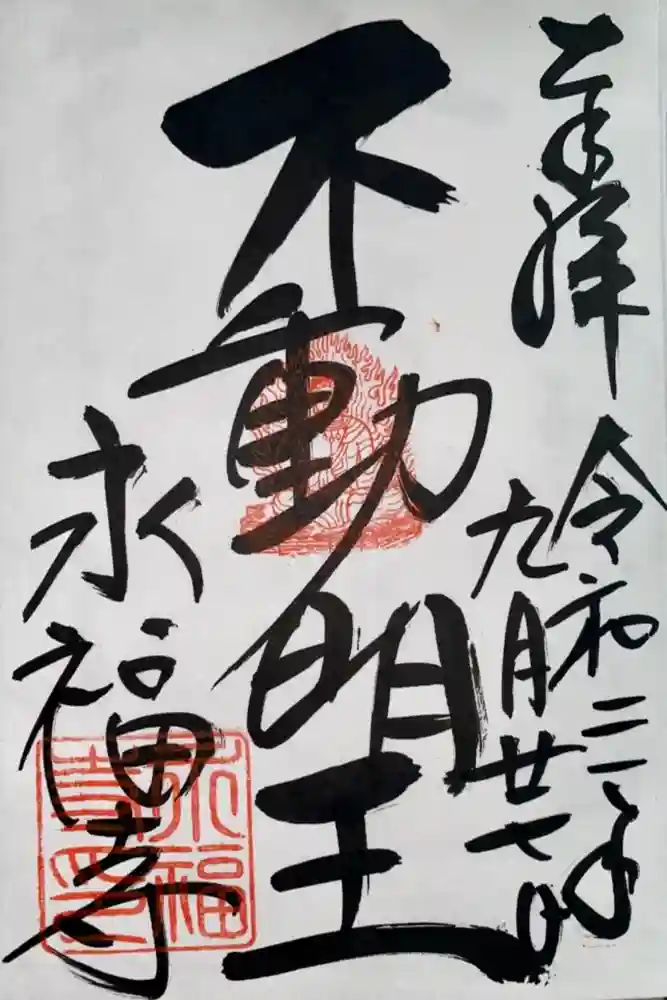 奉拝
令和三年
九月廿七日
不動明王
永福寺
永福
寺印